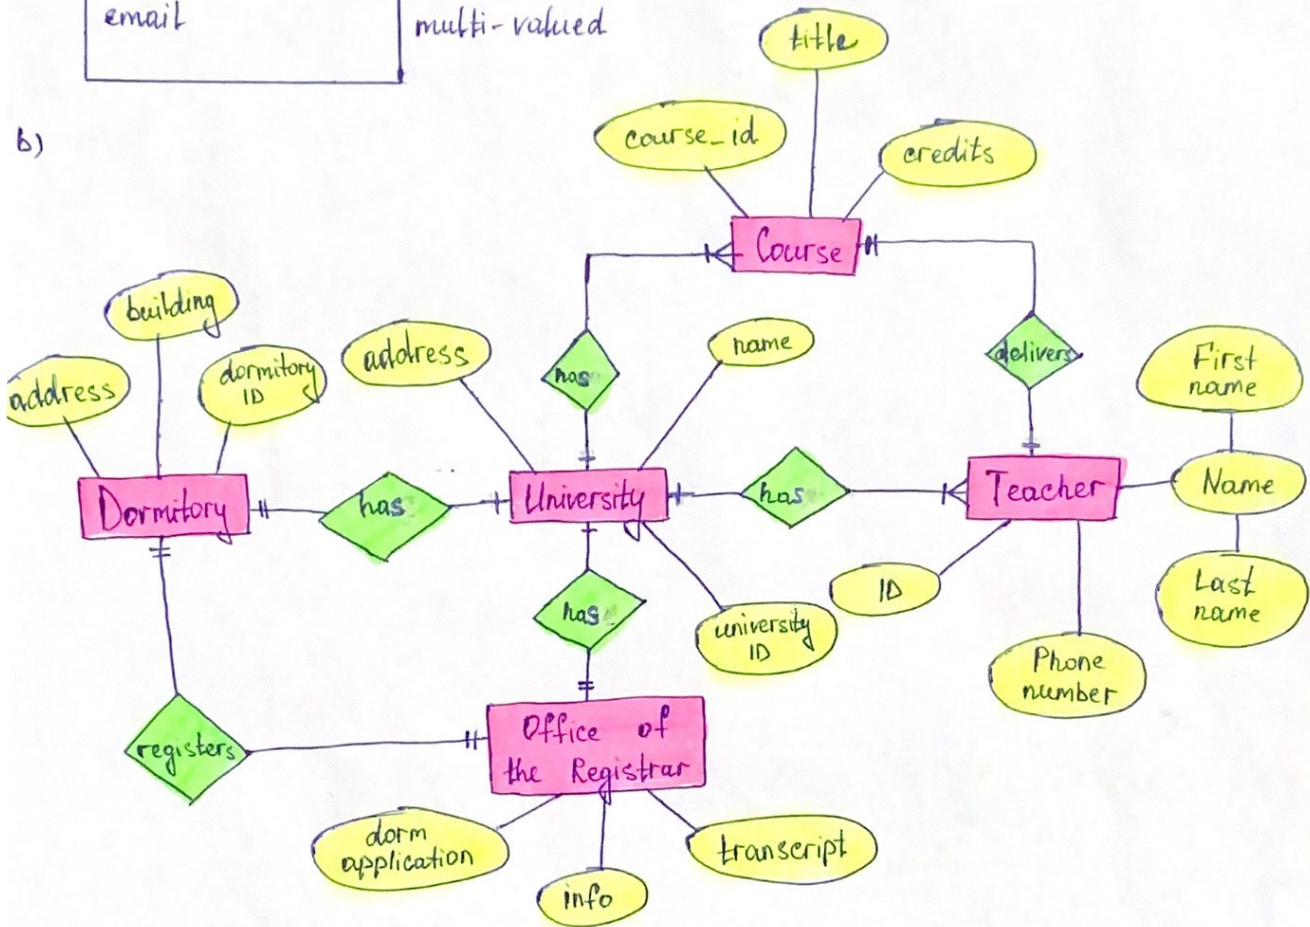 email
multi-valued
b)
title
course_id
credits
Course
building
address
dormitory
ID
address
name
has
delivers
First
name
Dormitory
has
University
has
Teacher
Name
ID
Last
name
has
university
ID
Phone
number
registers
Office of
the Registrar
dorm
application
info
transcript